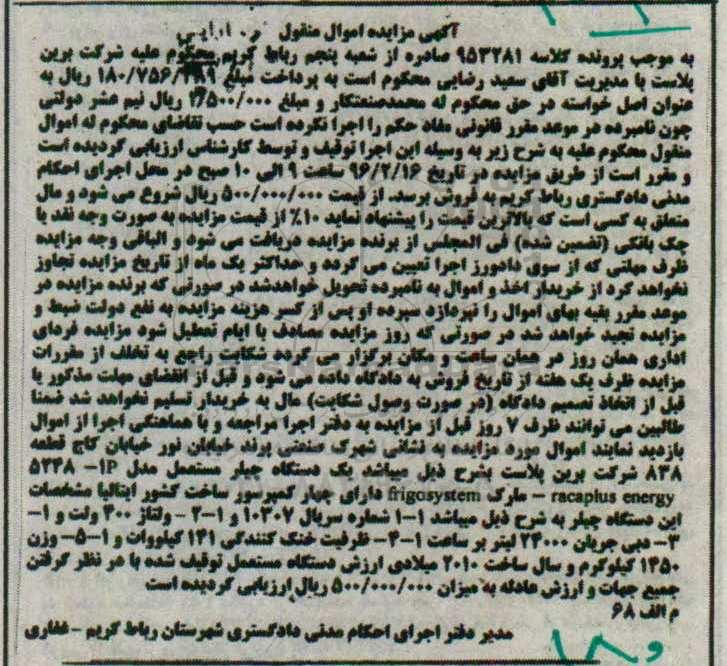 آگهی مزایده اموال منقول
به موجب پرونده کلاسه ۹۵۳۲۸۱ صادره از شعبه پنجم رباط کریم محکوم علیه شرکت برین
پلاست با مدیریت آقای سعید رضایی محکوم است به پرداخت مبلغ ۱۸۰/۷۵۶/ ریال به
عنوان اصل خواسته در حق محکوم له محمدصنعتکار و مبلغ ۲/۵۰۰/۰۰۰ ریال نیم عشر دولتی
چون نامبرده در موعد مقرر قانونی مفاد حکم را اجرا نکرده است حسب تقاضای محکوم له اموال
منقول محکوم علیه به شرح زیر به وسیله این اجرا توقیف و توسط کارشناس ارزیابی گردیده است
و مقرر است از طریق مزایده در تاریخ ۹۶/۲/۱۶ ساعت ۹ الی ۱۰ صبح در محل اجرای احکام
مدنی دادگستری رباط کریم به فروش برسد. از قیمت ۵۰۰/۰۰۰/۰۰۰ ریال شروع می شود و مال
متعلق به کسی است که بالاترین قیمت را پیشنهاد نماید ۱۰٪ از قیمت مزایده به صورت وجه نقد یا
چک بانکی (تضمین شده) فی المجلس از برنده مزایده دریافت می شود و الباقی وجه مزایده
ظرف مهلتی که از سوی دادورز اجرا تعیین می گردد و حداکثر یک ماه از تاریخ مزایده تجاوز
نخواهد کرد از خریدار اخذ و اموال به نامبرده تحویل خواهدشد در صورتی که برنده مزایده در
موعد مقرر بقیه بهای اموال را نپردازد سپرده او پس از کسر هزینه مزایده به نفع دولت ضبط و
مزایده تجید خواهد شد در صورتی که روز مزایده مصادف با ایام تعطیل شود مزایده فردای
اداری همان روز در همان ساعت و مکان برگزار می گردد شکایت راجع به تخلف از مقررات
مزایده ظرف یک هفته از تاریخ فروش به دادگاه داده می شود و قبل از انقضای مهلت مذکور یا
قبل از اتخاذ تصمیم دادگاه (در صورت وصول شکایت) مال به خریدار تسلیم نخواهد شد ضمنا
طالبین می توانند ظرف ۷ روز قبل از مزایده به دفتر اجرا مراجعه و با هماهنگی اجرا از اموال
بازدید نمایند اموال مورد مزایده به نشانی شهرک صنعتی پرند خیابان نور خیابان کاج قطعه
۸۳۸ شرکت برین پلاست بشرح ذیل میباشد یک دستگاه چیلر مستعمل مدل IP- ۵۳۴۸
racaplus energy – مارک frigosystem دارای چهار کمپرسور ساخت کشور ایتالیا مشخصات
این دستگاه چیلر به شرح ذیل میباشد ۱-۱ شماره سریال ۱۰۳۰۷ و ۱-۲ – ولتاژ ۴۰۰ ولت و ۱-
۳- دبی جریان ۲۴۰۰۰ لیتر بر ساعت ۱-۴- ظرفیت خنک کنندگی ۱۴۱ کیلووات و ۱-۵- وزن
۱۴۵۰ کیلوگرم و سال ساخت ۲۰۱۰ میلادی ارزش دستگاه مستعمل توقیف شده با در نظر گرفتن
جمیع جهات و ارزش عادله به میزان ۵۰۰/۰۰۰/۰۰۰ ریال ارزیابی گردیده است
م الف ۶۸
مدیر دفتر اجرای احکام مدنی دادگستری شهرستان رباط کریم - غفاری